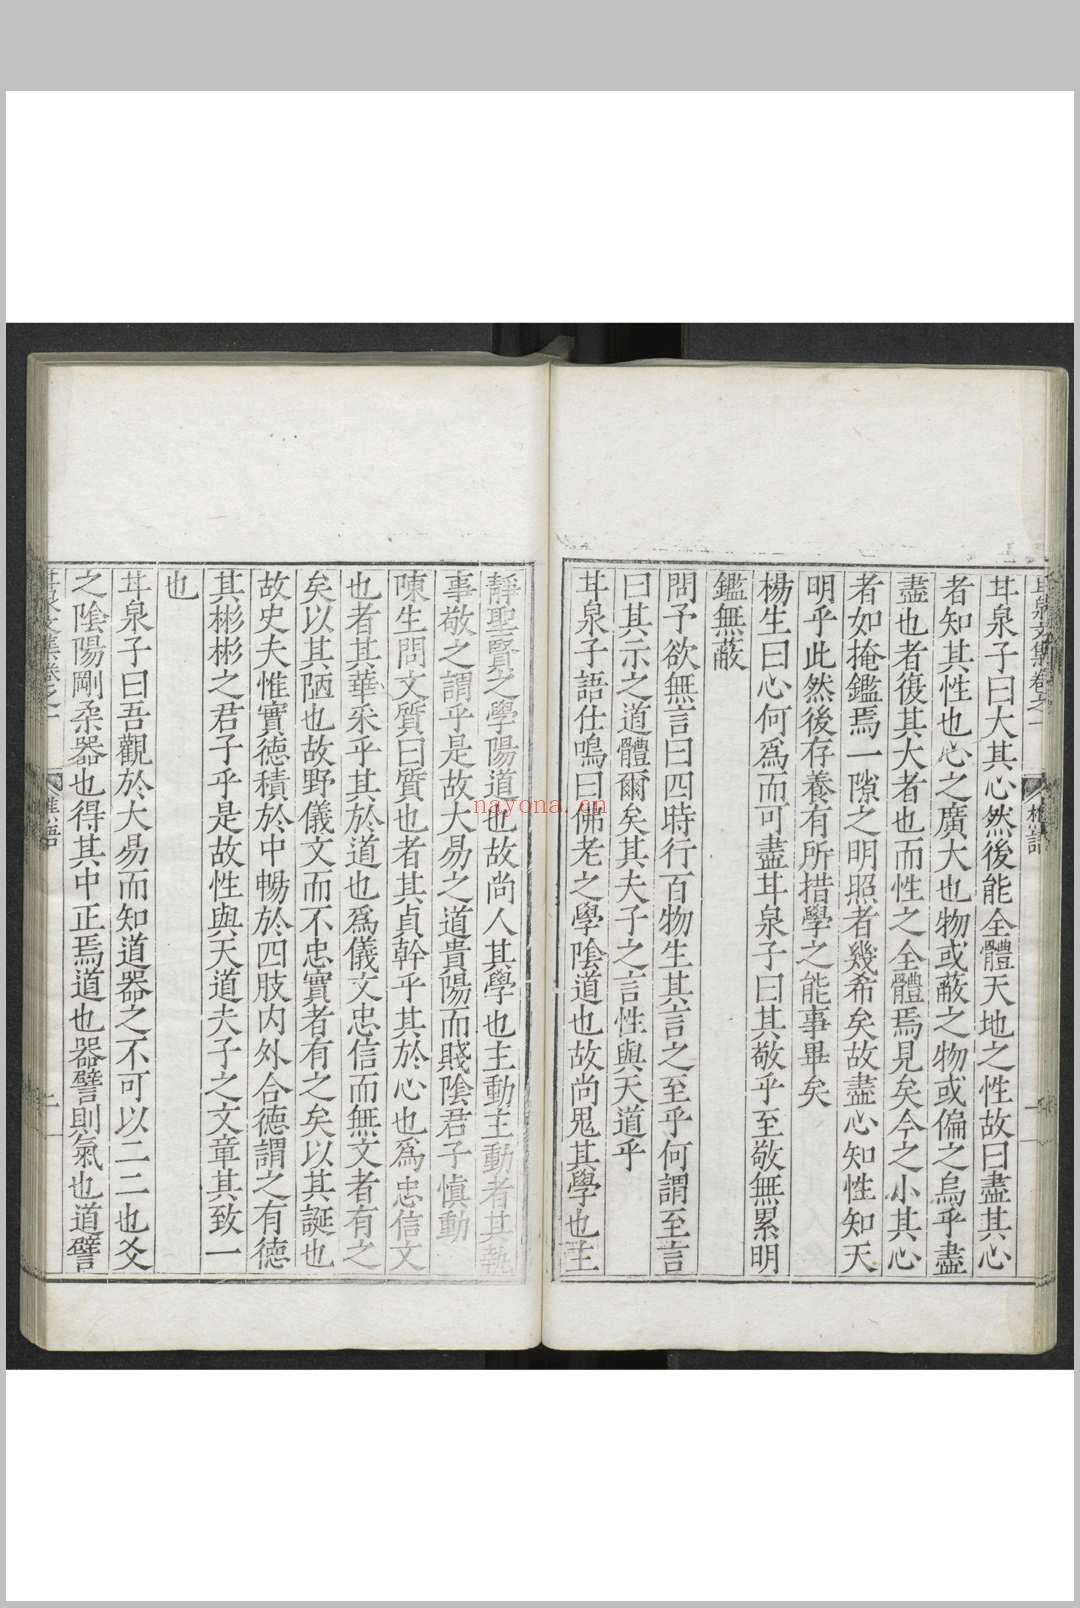 甘泉文集卷之一 樵語
甘泉子曰大其心然後能全體天地之性故曰盡其心
者知其性也心之廣大也物或蔽之物或偏之烏乎盡
盡也者復其大者也而性之全體焉見矣今之小其心
者如掩鑑焉一隙之明照者幾希矣故盡心知性知天
明乎此然後存養有所措學之能事畢矣
楊生曰心何爲而可盡甘泉子曰其敬乎至敬無累明
鑑無蔽
問予欲無言曰四時行百物生其言之至乎何謂至言
曰其示之道體爾矣其夫子之言性與天道乎
甘泉子語仕鳴曰佛老之學陰道也故尚鬼其學也主
靜聖賢之學陽道也故尚人其學也主動主動者其執
事敬之謂乎是故大易之道貴陽而賤陰君子慎動
陳生問文質曰質也者其貞幹乎其於心也爲忠信文
也者其華采乎其於道也爲儀文忠信而無文者有之
矣以其陋也故野儀文而不忠實者有之矣以其誕也
故史夫惟實德積於中暢於四肢内外合德謂之有德
其彬彬之君子乎是故性與天道夫子之文章其致一
也
甘泉子曰吾觀於大易而知道器之不可以二二也爻
之陰陽剛柔器也得其中正焉道也器譬則氣也道譬
甘泉文集卷之一 樵語 二
nayona.cn